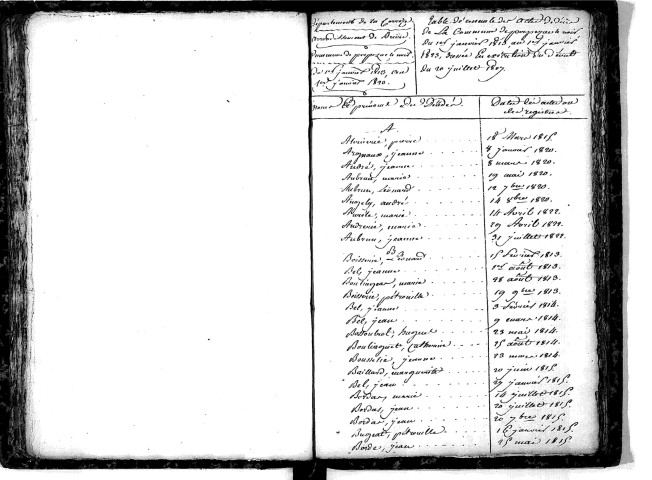 Département de la Corrèze
arrondissement de Brive
Commune de perpezac le noir
du 1er janvier 1813 au
1er janvier 1823.
Table décennale des actes de Décès
de La Commune de perpezac le noir
du 1er janvier 1813, au 1er janvier
1823, dressée en exécution du décret
du 20 juillet 1807.
noms & prénoms des Décédés
Dates des actes ou
des registres
A
pierre 18 Mars 1815.
jeanne 8 janvier 1820.
André, jeanne 8 mars 1820.
Aubrun, marie 19 mai 1820.
Aubrun, Léonard 12 7bre 1820.
Angely, andré 14 8bre 1820.
marie 14 Avril 1822.
marie 29 Avril 1822.
Aubrun, jeanne 31 juillet 1822.
B
Boisserie, Léonard 15 février 1813.
Bel, jeanne 1er août 1813.
Boulinguet, marie 28 août 1813.
Boisserie, pétronille 19 9bre 1813.
Bel, jeanne 3 février 1814.
Bel, jean 9 mars 1814.
23 mai 1814.
Boulinguet, Catherine 25 août 1814.
jeanne 23 mars 1814.
Baillard, marguerite 20 juin 1815.
Bel, jean 29 janvier 1815.
Bordas, marie 14 juillet 1815.
Bordas, jean 20 juillet 1815.
Bordas, jean 20 7bre 1815.
Bugeat, pétronille 16 janvier 1815.
Borde, jean 25 mai 1815.